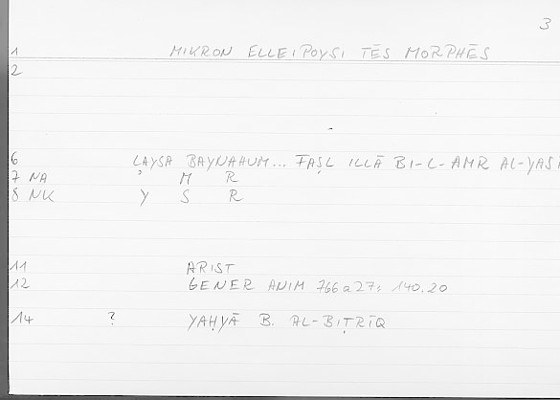 3
1 MIKRON ELLEIPOYSI TĒS MORPHĒS
2
6 LAYSA BAYNAHUM... FAṢL ILLĀ BI-L-AMR AL-YASĪ
7 NA M R
8 NK Y S R
11 ARIST
12 GENER ANIM 766a27; 140.20
14 ? YAḤYĀ B. AL-BIṬRĪQ